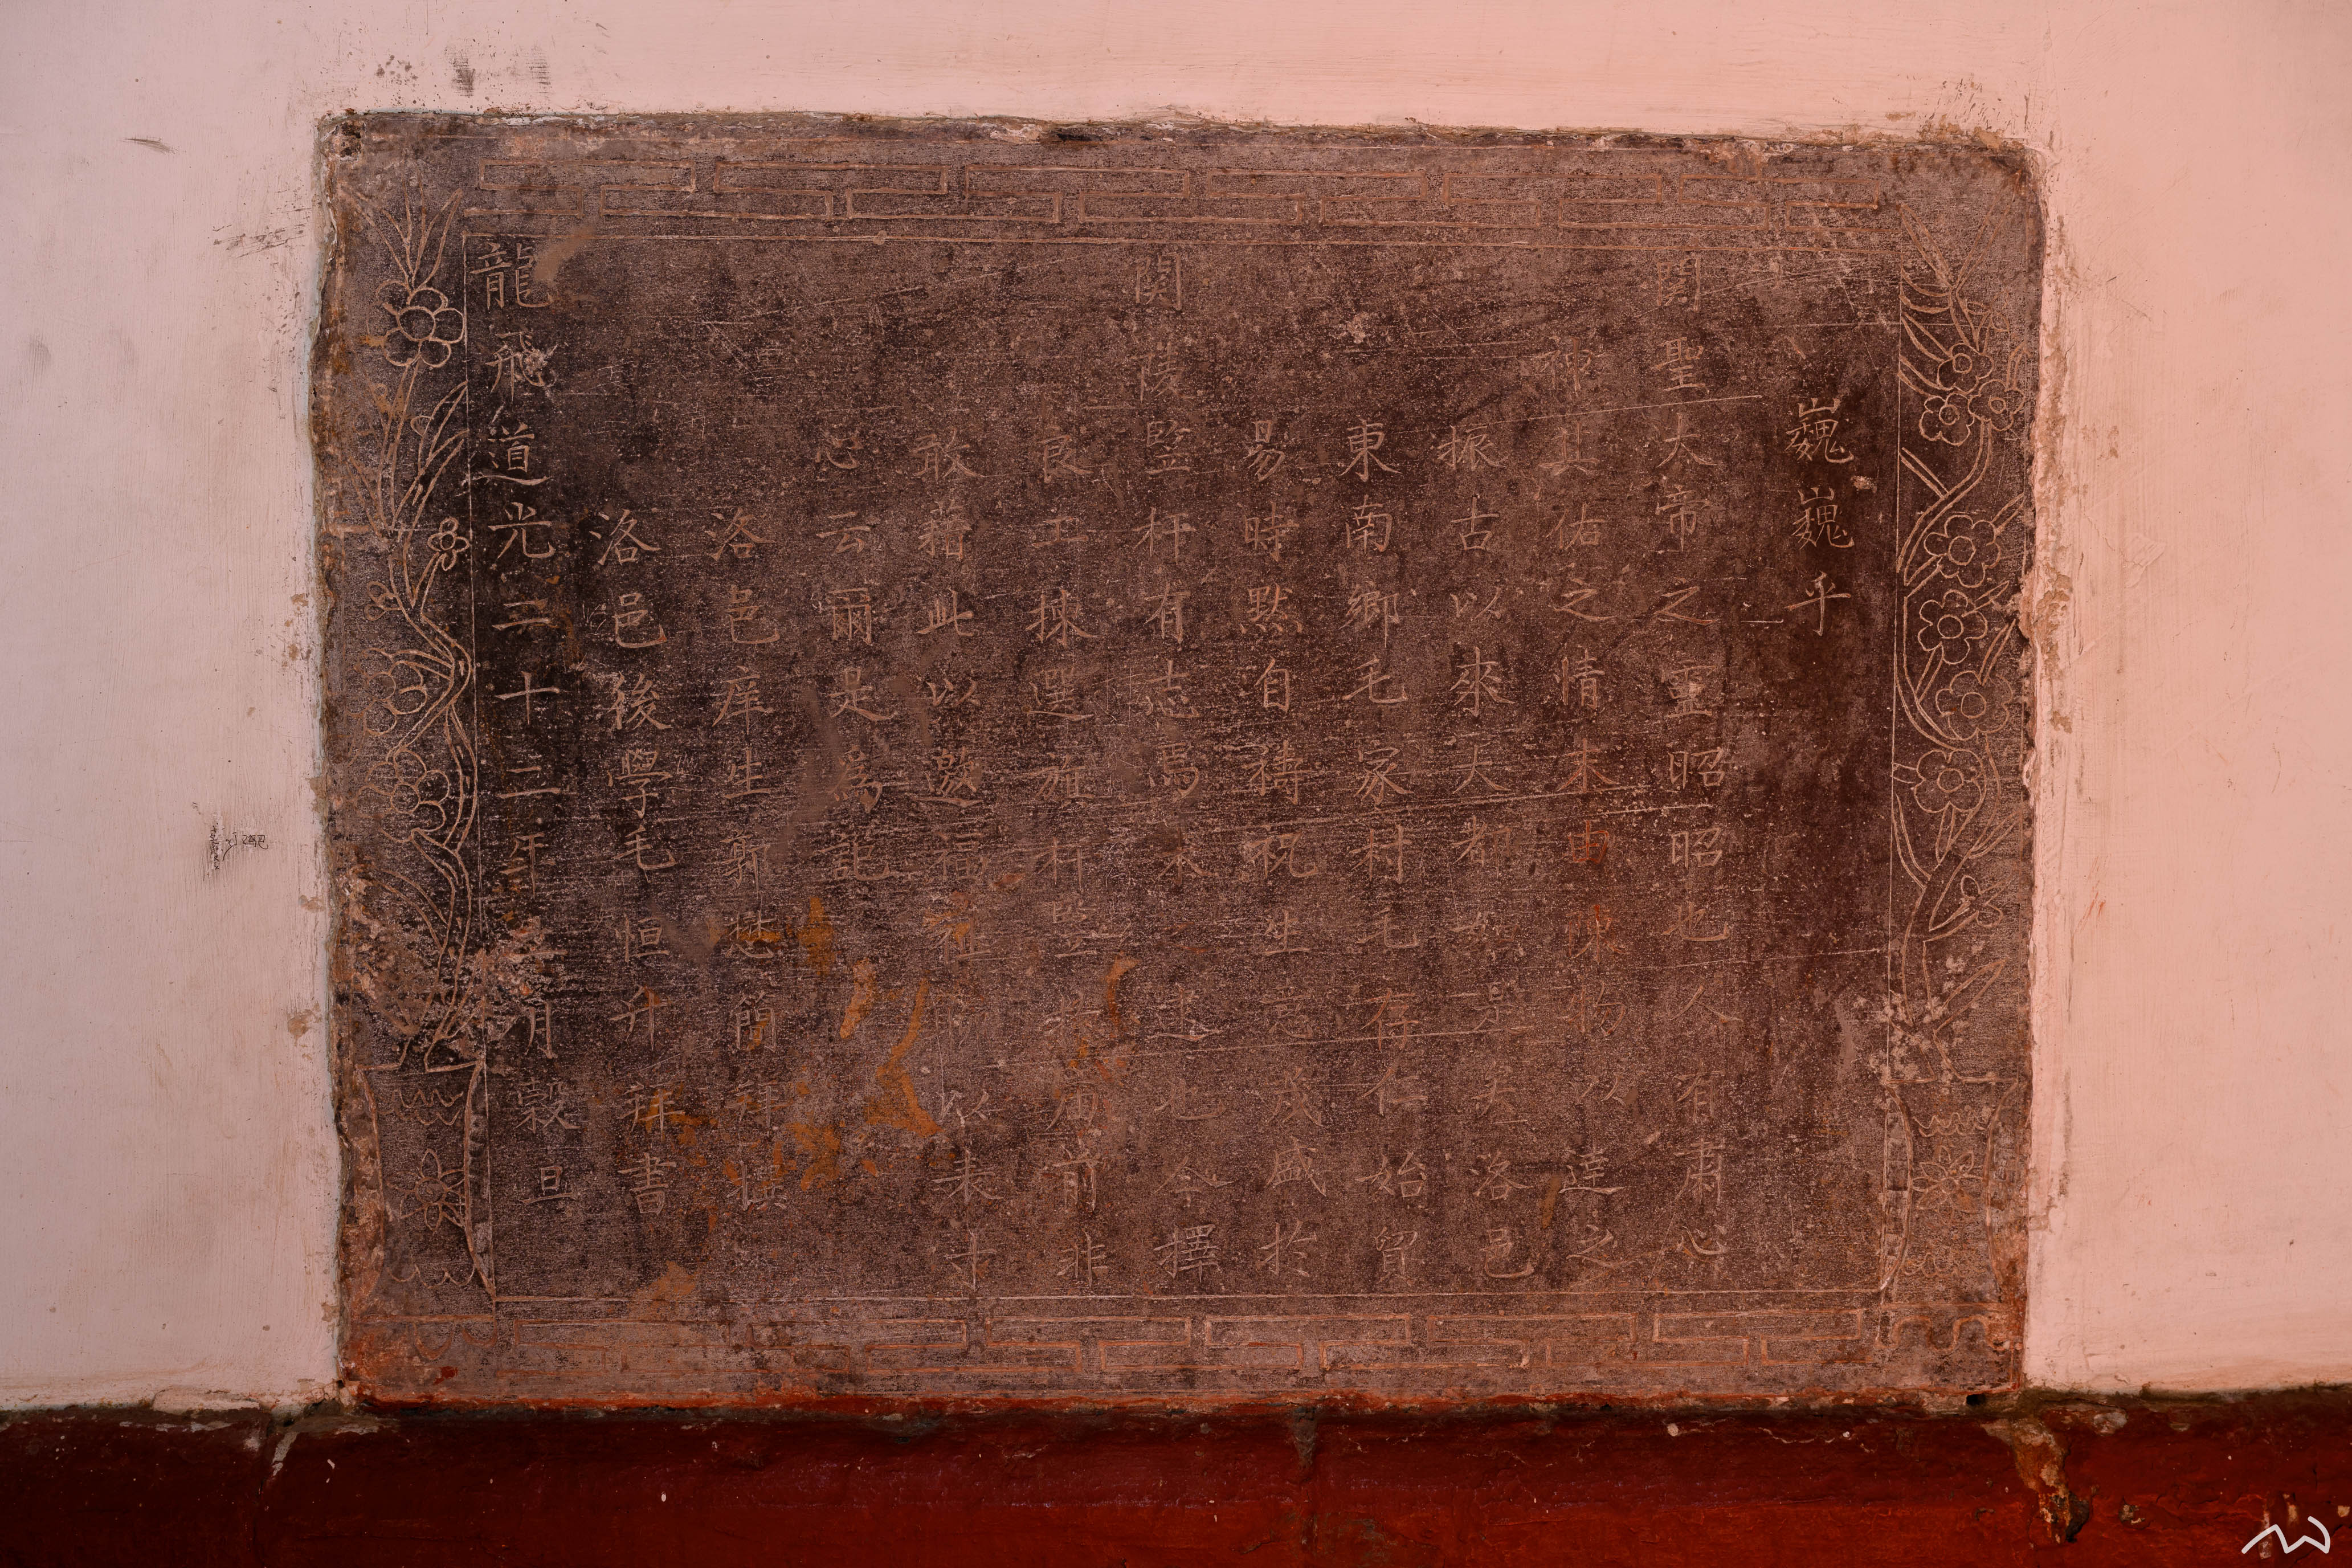 巍巍乎
關聖大帝之靈昭昭也人有肅心
祈其佑之情未由束物以達之
振古以來大都如是矣洛邑
東南鄉毛家村毛存仁始貿
易時默自禱祝生意茂盛於
關陵豎杆有志焉未逮也今擇
良工揀選雄杆豎於廟前非
敢藉此以邀福祉所以表寸
心云爾是爲記
洛邑庠生郭懋簡拜撰
洛邑後學毛恒升拜書
龍飛道光二十二年月穀旦